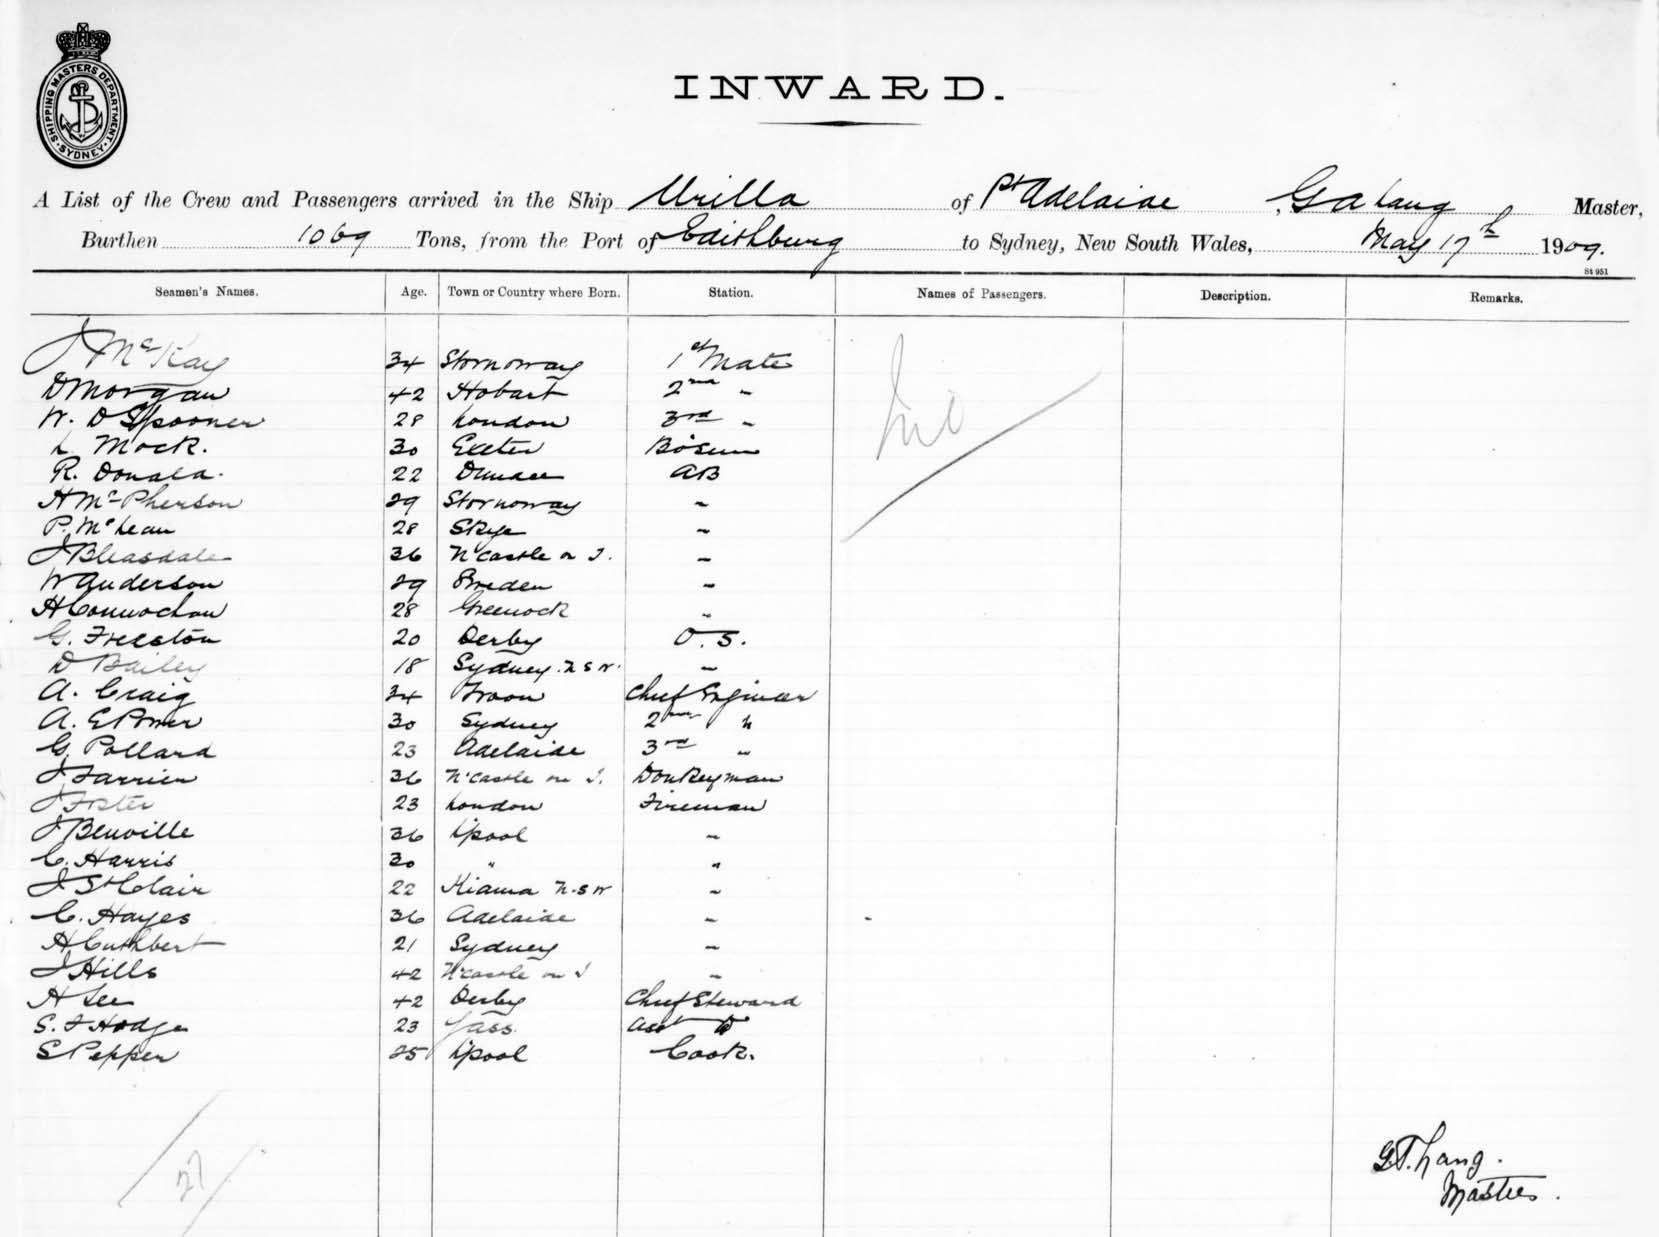 SHIPPING MASTERS DEPARTMENT. SYDNEY.
INWARD.
A List of the Crew and Passengers arrived in the Ship Urilla of Pt Adelaide, G A Lang Master,
Burthen 1069 Tons, from the Port of Edithburg to Sydney, New South Wales, May 17th 1909.
St 951
Seamen's Names. Age. Town or Country where Born. Station. Names of Passengers. Description. Remarks.
J McKay 34 Stornoway 1st Mate Nil
D Morgan 42 Hobart 2nd "
W. D Spooner 28 London 3rd "
L. Mock. 30 Exeter Bosun
R. Donald. 22 Dundee AB
H McPherson 29 Stornoway "
P. McLean 28 Skye "
J Bleasdale 36 N'castle on T. "
W Anderson 29 "
H Connochan 28 Greenock "
G. Freeston 20 Derby O.S.
D Bailey 18 Sydney. N S W. "
A. Craig 34 Troon Chief Engineer
A. E 30 Sydney 2nd "
G. Pollard 23 Adelaide 3rd "
J Farrier 36 N'castle on T. Donkeyman
J. Foster 23 London Fireman
J Benville 36 L'pool "
C. Harris 30 " "
J St Clair 22 Kiama N.S W "
C. Hayes 36 Adelaide "
H Cuthbert 21 Sydney "
J Hills 42 N'castle on T "
H Lee 42 Derby Chief Steward
S. J Hodge 23 Yass. Asst Do
S Pepper 25 L'pool Cook.
27
G. T. Lang.
Master.